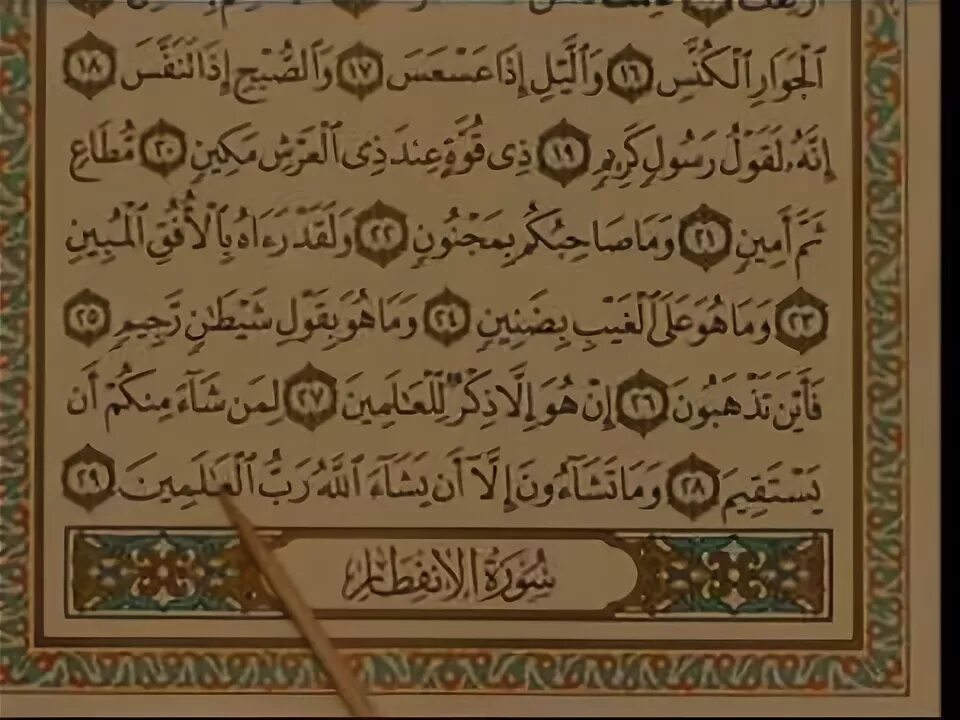 ٱلۡجَوَارِ ٱلۡكُنَّسِ ١٦ وَٱلَّيۡلِ إِذَا عَسۡعَسَ ١٧ وَٱلصُّبۡحِ إِذَا تَنَفَّسَ ١٨
إِنَّهُۥ لَقَوۡلُ رَسُولٖ كَرِيمٖ ١٩ ذِى قُوَّةٍ عِندَ ذِى ٱلۡعَرۡشِ مَكِينٖ ٢٠ مُّطَاعٖ
ثَمَّ أَمِينٖ ٢١ وَمَا صَاحِبُكُم بِمَجۡنُونٖ ٢٢ وَلَقَدۡ رَءَاهُ بِٱلۡأُفُقِ ٱلۡمُبِينِ
٢٣ وَمَا هُوَ عَلَى ٱلۡغَيۡبِ بِضَنِينٖ ٢٤ وَمَا هُوَ بِقَوۡلِ شَيۡطَٰنٖ رَّجِيمٖ ٢٥
فَأَيۡنَ تَذۡهَبُونَ ٢٦ إِنۡ هُوَ إِلَّا ذِكۡرٞ لِّلۡعَٰلَمِينَ ٢٧ لِمَن شَآءَ مِنكُمۡ أَن
يَسۡتَقِيمَ ٢٨ وَمَا تَشَآءُونَ إِلَّآ أَن يَشَآءَ ٱللَّهُ رَبُّ ٱلۡعَٰلَمِينَ ٢٩
سُورَةُ الِانفِطَارِ